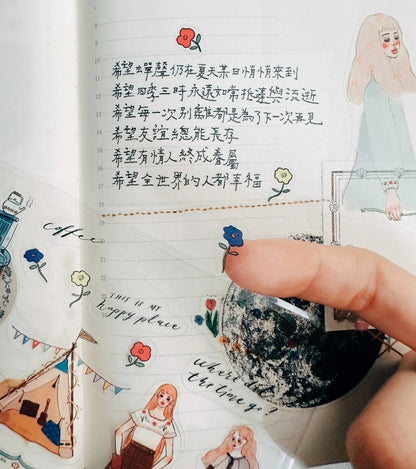 希望蟬聲仍在夏天某日悄悄來到
希望四季三時永遠如常推遷與流逝
希望每一次別離都是為了下一次再見
希望友誼總能長存
希望有情人終成眷屬
希望全世界的人都幸福
coffee
THIS IS MY
happy place
where did
the time go?